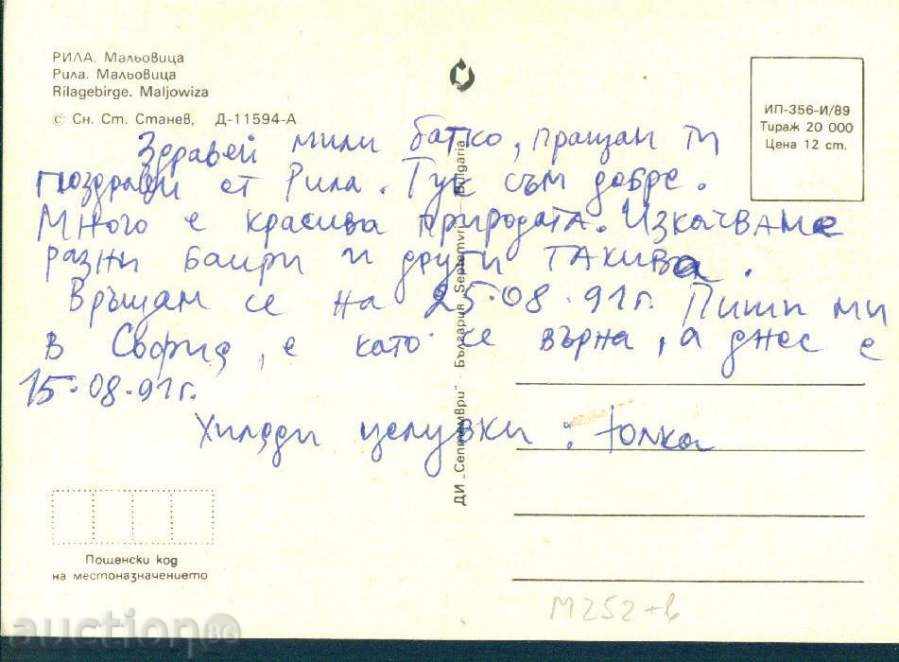 РИЛА. Мальовица
Рила. Мальовица
Rilagebirge. Maljowiza
© Сн. Ст. Станев, Д-11594-А
ИП-356-И/89
Тираж 20 000
Цена 12 ст.
Здравей мили батко, пращам ти
поздрави от Рила. Тук съм добре.
Много е красива природата. Изкачваме
разни баири и други такива.
Връщам се на 25.08.91г. Пиши ми
в София, е като се върна, а днес е
15.08.91г.
Хиляди целувки: Юлка
ДИ „Септември" · България Septemvri — Bulgaria
Пощенски код
на местоназначението
М252-в
auction